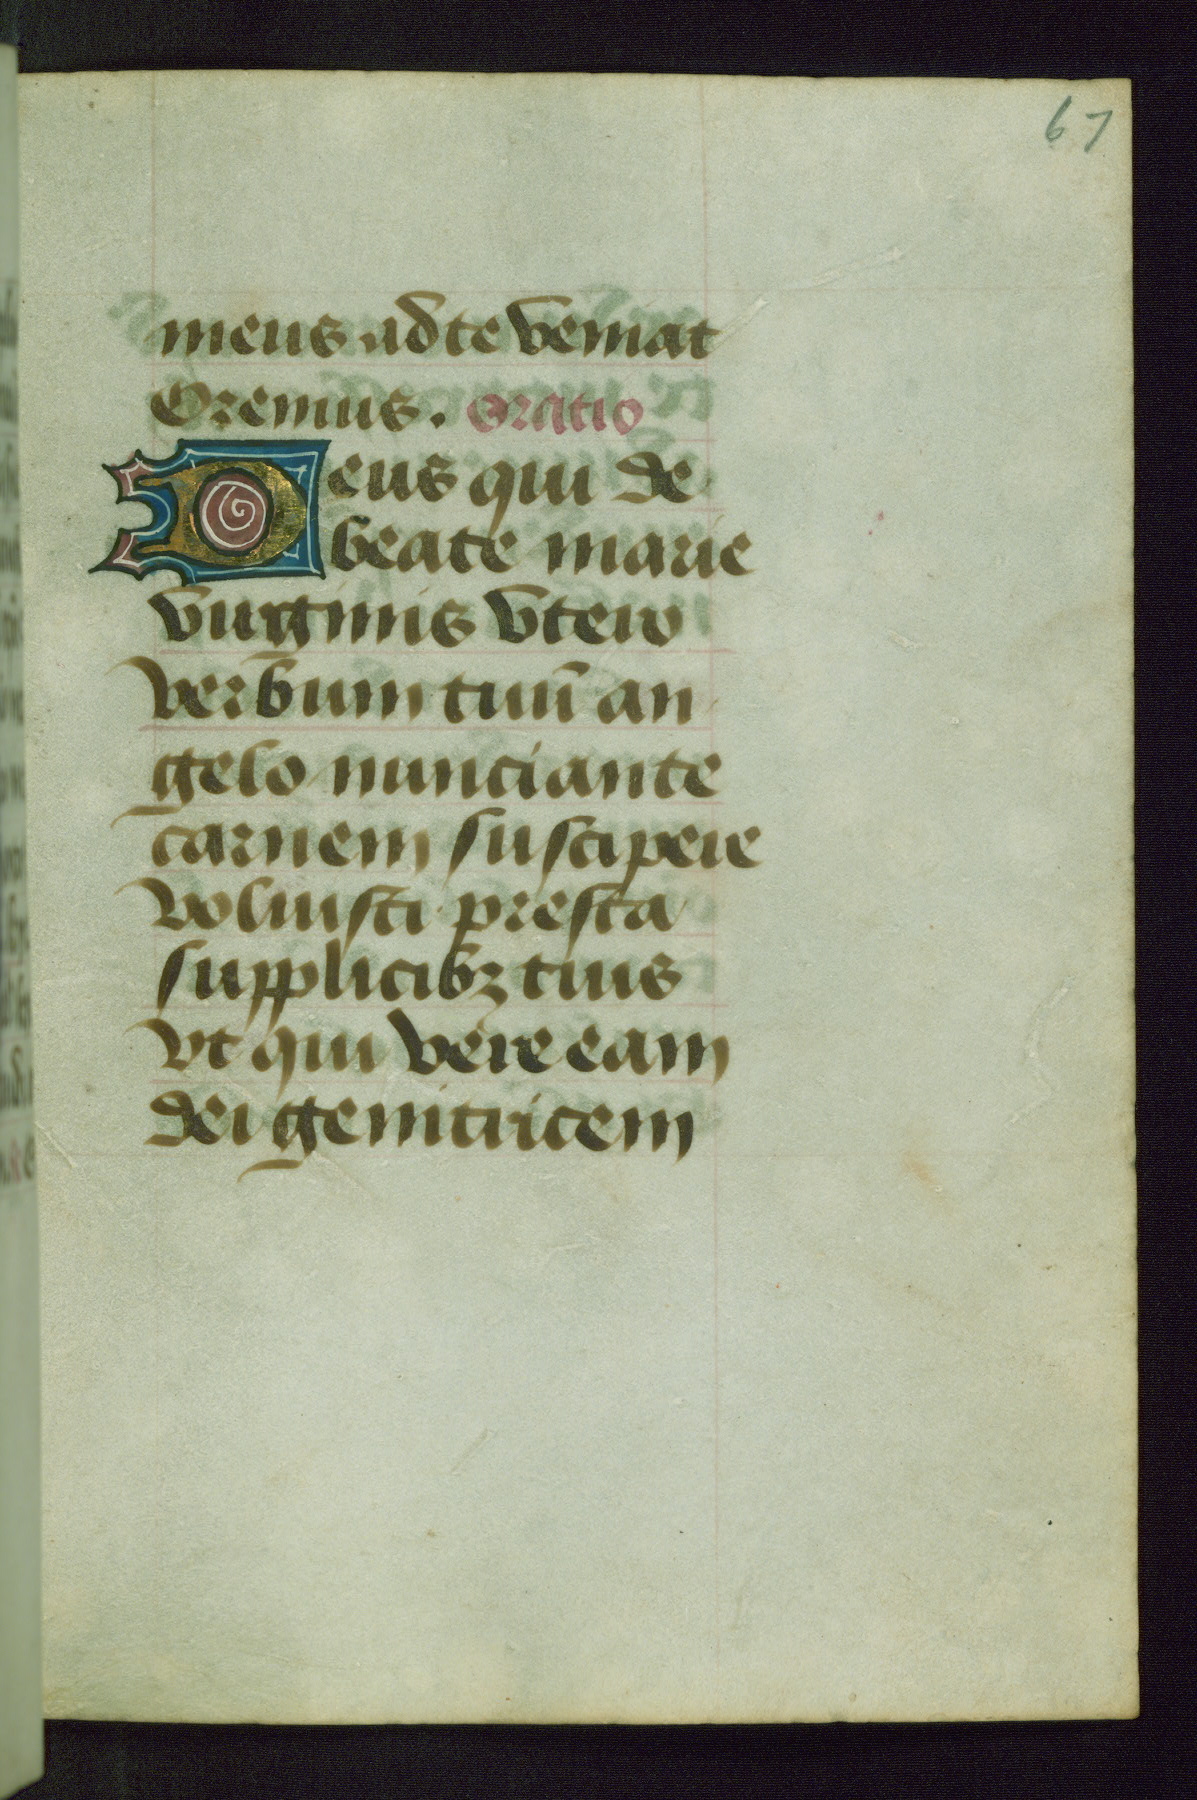 67
meus ad te veniat
Oremus. oratio
Deus qui de
beate marie
virginis vtero
verbum tuū an
gelo nunciante
carnem suscipere
voluisti presta
supplicibꝫ tuis
vt qui vere eam
dei genitricem